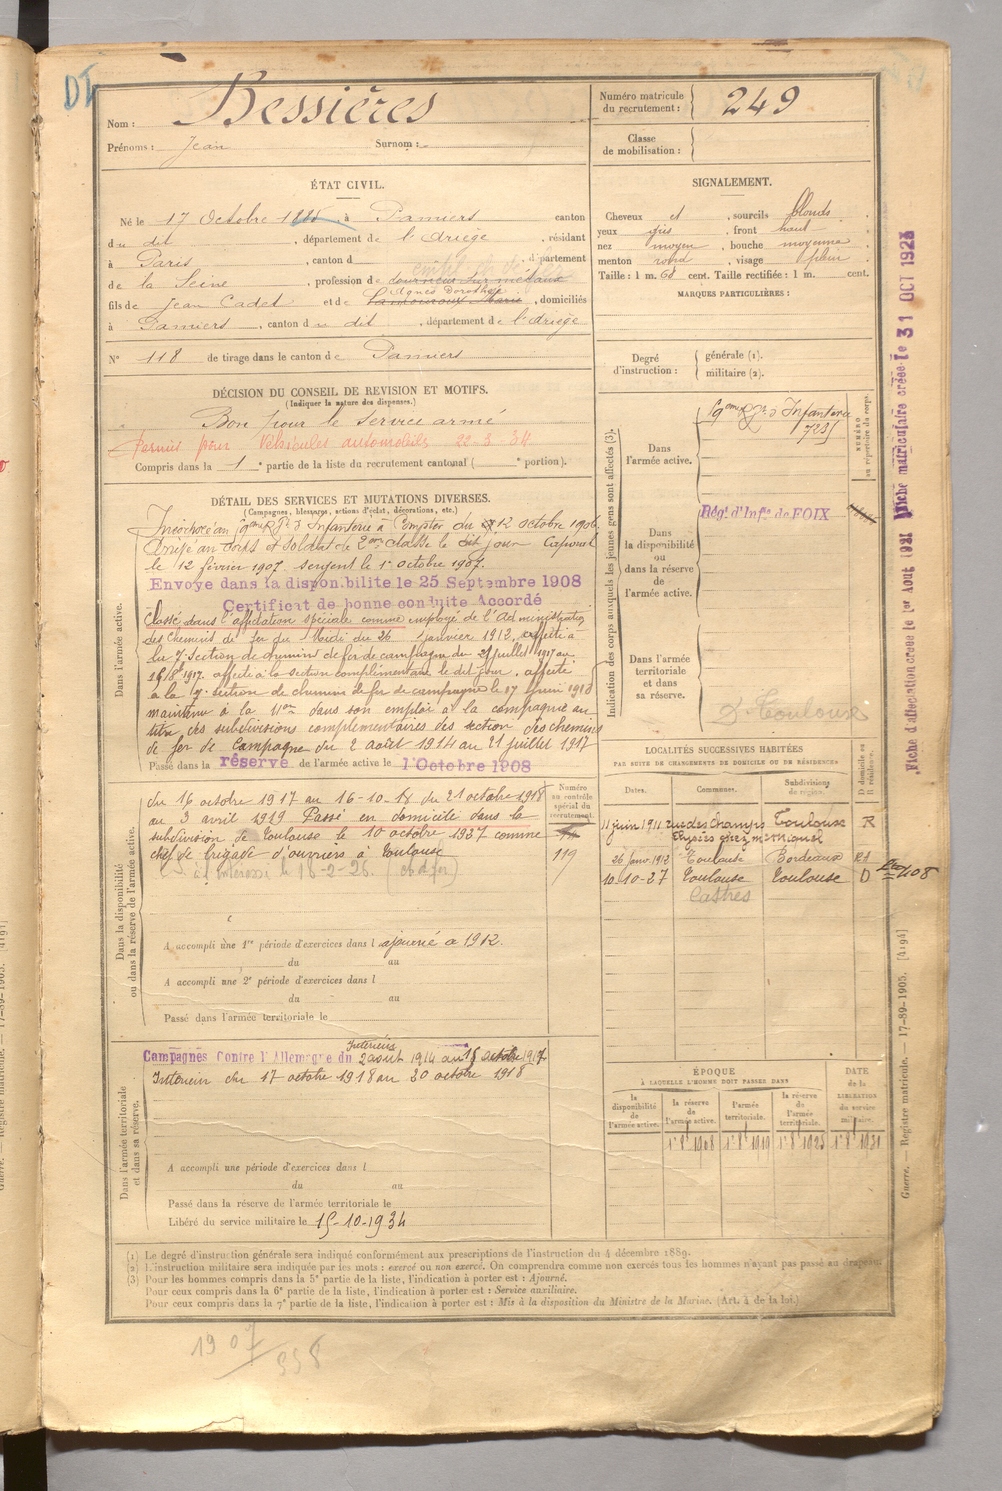 DI
Nom : Bessières
Prénoms : Jean Surnom :
Numéro matricule du recrutement : 249
Classe de mobilisation :
ÉTAT CIVIL.
Né le 17 Octobre à Pamiers canton
du dit, département de l'Ariège, résidant
à Paris, canton d, département
de la Seine, profession de tourneur sur métaux
Agnès Dorothée
fils de Jean Cadet et de Lamouroux Marie, domiciliés
à Pamiers, canton du dit, département de l'Ariège
N° 118 de tirage dans le canton de Pamiers
SIGNALEMENT.
Cheveux et, sourcils blonds.
yeux gris, front haut
nez moyen, bouche moyenne
menton rond, visage plein
Taille : 1 m. 68 cent. Taille rectifiée : 1 m. cent.
MARQUES PARTICULIÈRES :
Degré d'instruction : générale (1). militaire (2).
DÉCISION DU CONSEIL DE REVISION ET MOTIFS.
(Indiquer la nature des dispenses.)
Bon pour le service armé
Permis pour Véhicules automobiles 22-3-34
Compris dans la 1e partie de la liste du recrutement cantonal ( e portion).
DÉTAIL DES SERVICES ET MUTATIONS DIVERSES.
(Campagnes, blessures, actions d'éclat, décorations, etc.)
Dans l'armée active.
Incorporé au Rgt d'Infanterie à Compter du 12 octobre 1906
Arrivé au corps et soldat de 2eme classe le dit jour Caporal
le 12 février 1907. sergent le 1er octobre 1907.
Envoyé dans la disponibilite le 25 Septembre 1908
Certificat de bonne conduite Accordé
Classé dans l'affectation spéciale comme employé de l'Administration
des Chemins de fer du Midi du 26 Janvier 1912, affecté à
la 7e section de chemins de fer de campagne du 21 juillet 1917 au
1917. affecté à la section complémentaire le dit jour. affecté
à la section de chemins de fer de campagne le 17 1918
maintenu à la dans son emploi à la compagnie au
titre des subdivisions complémentaires des section des chemins
de fer de Campagne du 2 août 1914 au 21 juillet 1917
Passé dans la réserve de l'armée active le 1 Octobre 1908
Dans la disponibilité ou dans la réserve de l'armée active.
du 16 octobre 1917 au 16-10-18 du 21 octobre 1918
au 3 avril 1919 Passé en domicile dans la
subdivision de Toulouse le 10 octobre 1927 comme
chef de brigade d'ouvriers à Toulouse
le 18-2-26.
Numéro au contrôle spécial du recrutement.
119
A accompli une 1re période d'exercices dans l ajourné a 1912.
du au
A accompli une 2e période d'exercices dans l
du au
Passé dans l'armée territoriale le
Dans l'armée territoriale et dans sa réserve.
Intérieur
Campagnes Contre l'Allemagne du 2 aout 1914 au 15 octobre 1917
Intérieur du 17 octobre 1918 au 20 octobre 1918
A accompli une période d'exercices dans l
du au
Passé dans la réserve de l'armée territoriale le
Libéré du service militaire le 15-10-1934
Indication des corps auxquels les jeunes gens sont affectés (3).
NUMÉRO au répertoire du corps.
Dans l'armée active.
Infanterie
Dans la disponibilité ou dans la réserve de l'armée active.
Régt d'Infie de FOIX
Dans l'armée territoriale et dans sa réserve.
D. Toulouse
LOCALITÉS SUCCESSIVES HABITÉES
PAR SUITE DE CHANGEMENTS DE DOMICILE OU DE RÉSIDENCES
Dates. Communes. Subdivisions de région. D domicile ou R résidence.
11 juin 1911 rue des Champs Toulouse R
Elysées
26 Janv. 1912 Toulouse Bordeaux
10-10-27 Toulouse Toulouse D
Castres
ÉPOQUE
À LAQUELLE L'HOMME DOIT PASSER DANS
la disponibilité de l'armée active. la réserve de l'armée active. l'armée territoriale. la réserve de l'armée territoriale.
DATE de la LIBÉRATION du service militaire.
Fiche d'affectation créée le 1er Aout 1921 Fiche matriculaire créée le 31 OCT 1923
Guerre. — Registre matricule. — 17-89-1905. [4194]
(1) Le degré d'instruction générale sera indiqué conformément aux prescriptions de l'instruction du 4 décembre 1889.
(2) L'instruction militaire sera indiquée par les mots : exercé ou non exercé. On comprendra comme non exercés tous les hommes n'ayant pas passé au drapeau.
(3) Pour les hommes compris dans la 5e partie de la liste, l'indication à porter est : Ajourné.
Pour ceux compris dans la 6e partie de la liste, l'indication à porter est : Service auxiliaire.
Pour ceux compris dans la 7e partie de la liste, l'indication à porter est : Mis à la disposition du Ministre de la Marine. (Art. 4 de la loi.)
1907